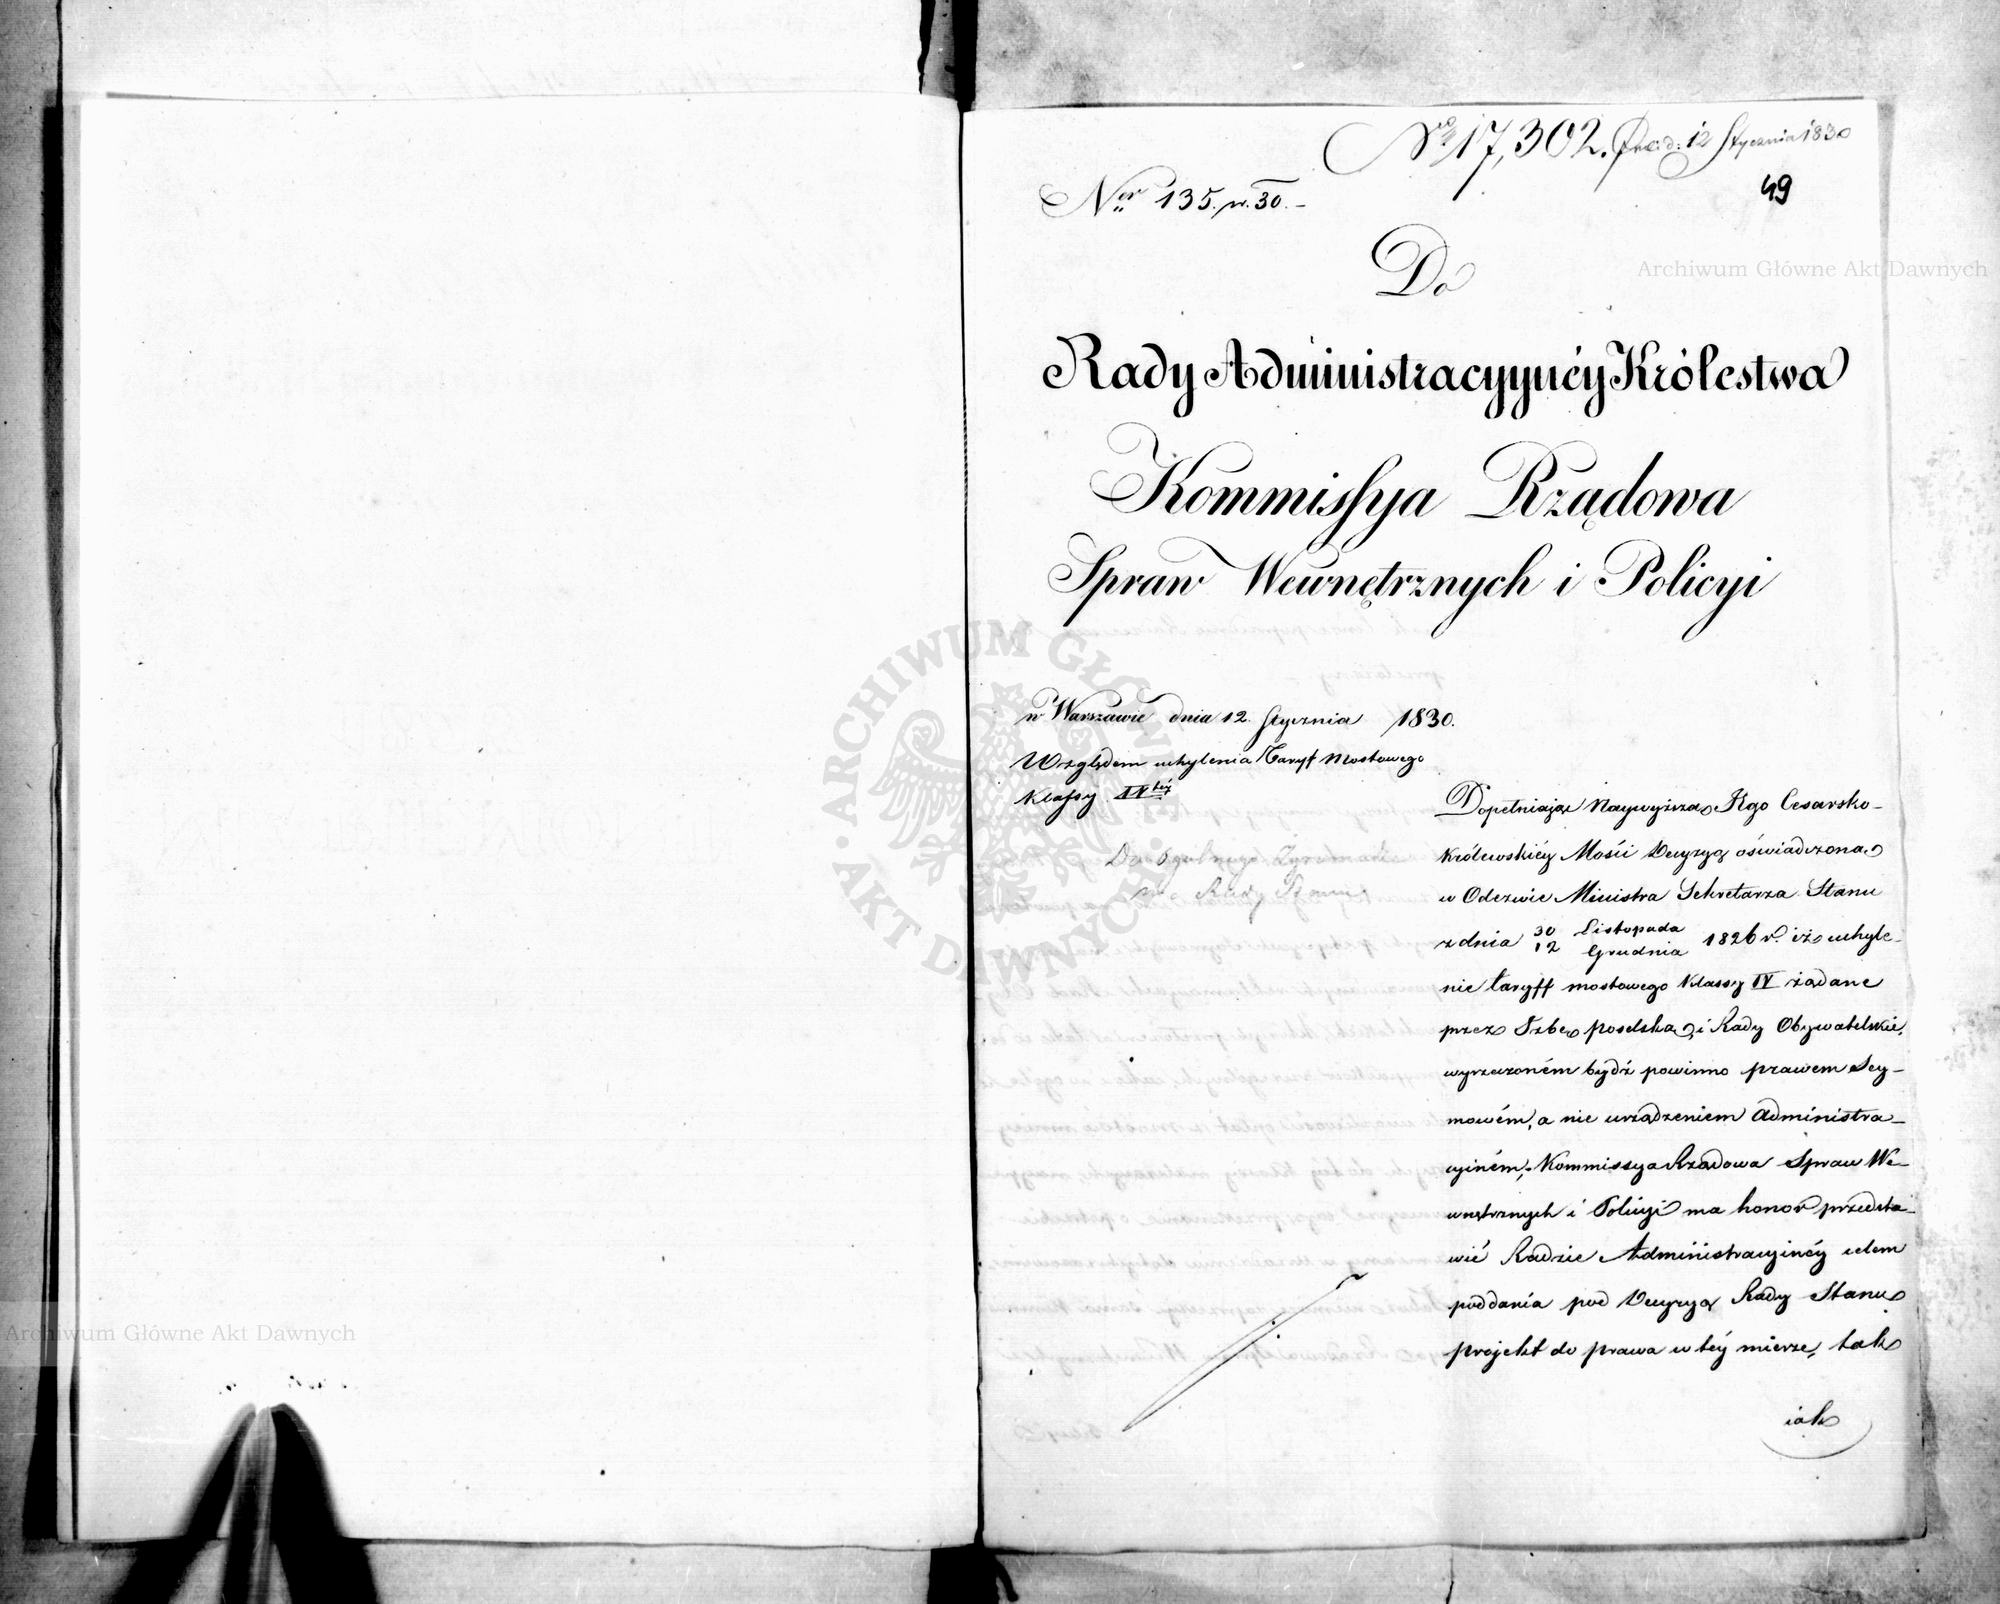 No 17,302. Prae: d: 12 Stycznia 1830
Ner 135. r. 30. –
49
Do
Rady Administracyynéy Królestwa
Kommissya Rządowa
Spraw Wewnętrznych i Policyi
w Warszawie dnia 12. Stycznia 1830.
Względem uchylenia Taryf Mostowego
Klassy IVtéy
Do Ogulnego Zgromadz
Rady Stanu
Dopełniaiąc Naywyższą Jego Cesarsko–
Królewskiéy Mości Decyzyą oświadczoną
w Odezwie Ministra Sekretarza Stanu
z dnia 30 Listopada
12 Grudnia 1826 r. iż uchyle–
nie taryff mostowego Klassy IV żądane
przez Izbę poselską i Rady Obywatelskie,
wyrzeczoném bydź powinno prawem Sey–
mowém, a nie urządzeniem administra–
cyiném; Kommissya Rządowa Spraw We–
wnętrznych i Policyi ma honor przedsta–
wić Radzie Administracyinéy celem
poddania pod Decyzyą Rady Stanu
projekt do prawa w téy mierze, tak
iak
Archiwum Główne Akt Dawnych
ARCHIWUM GŁÓWNE AKT DAWNYCH
Archiwum Główne Akt Dawnych